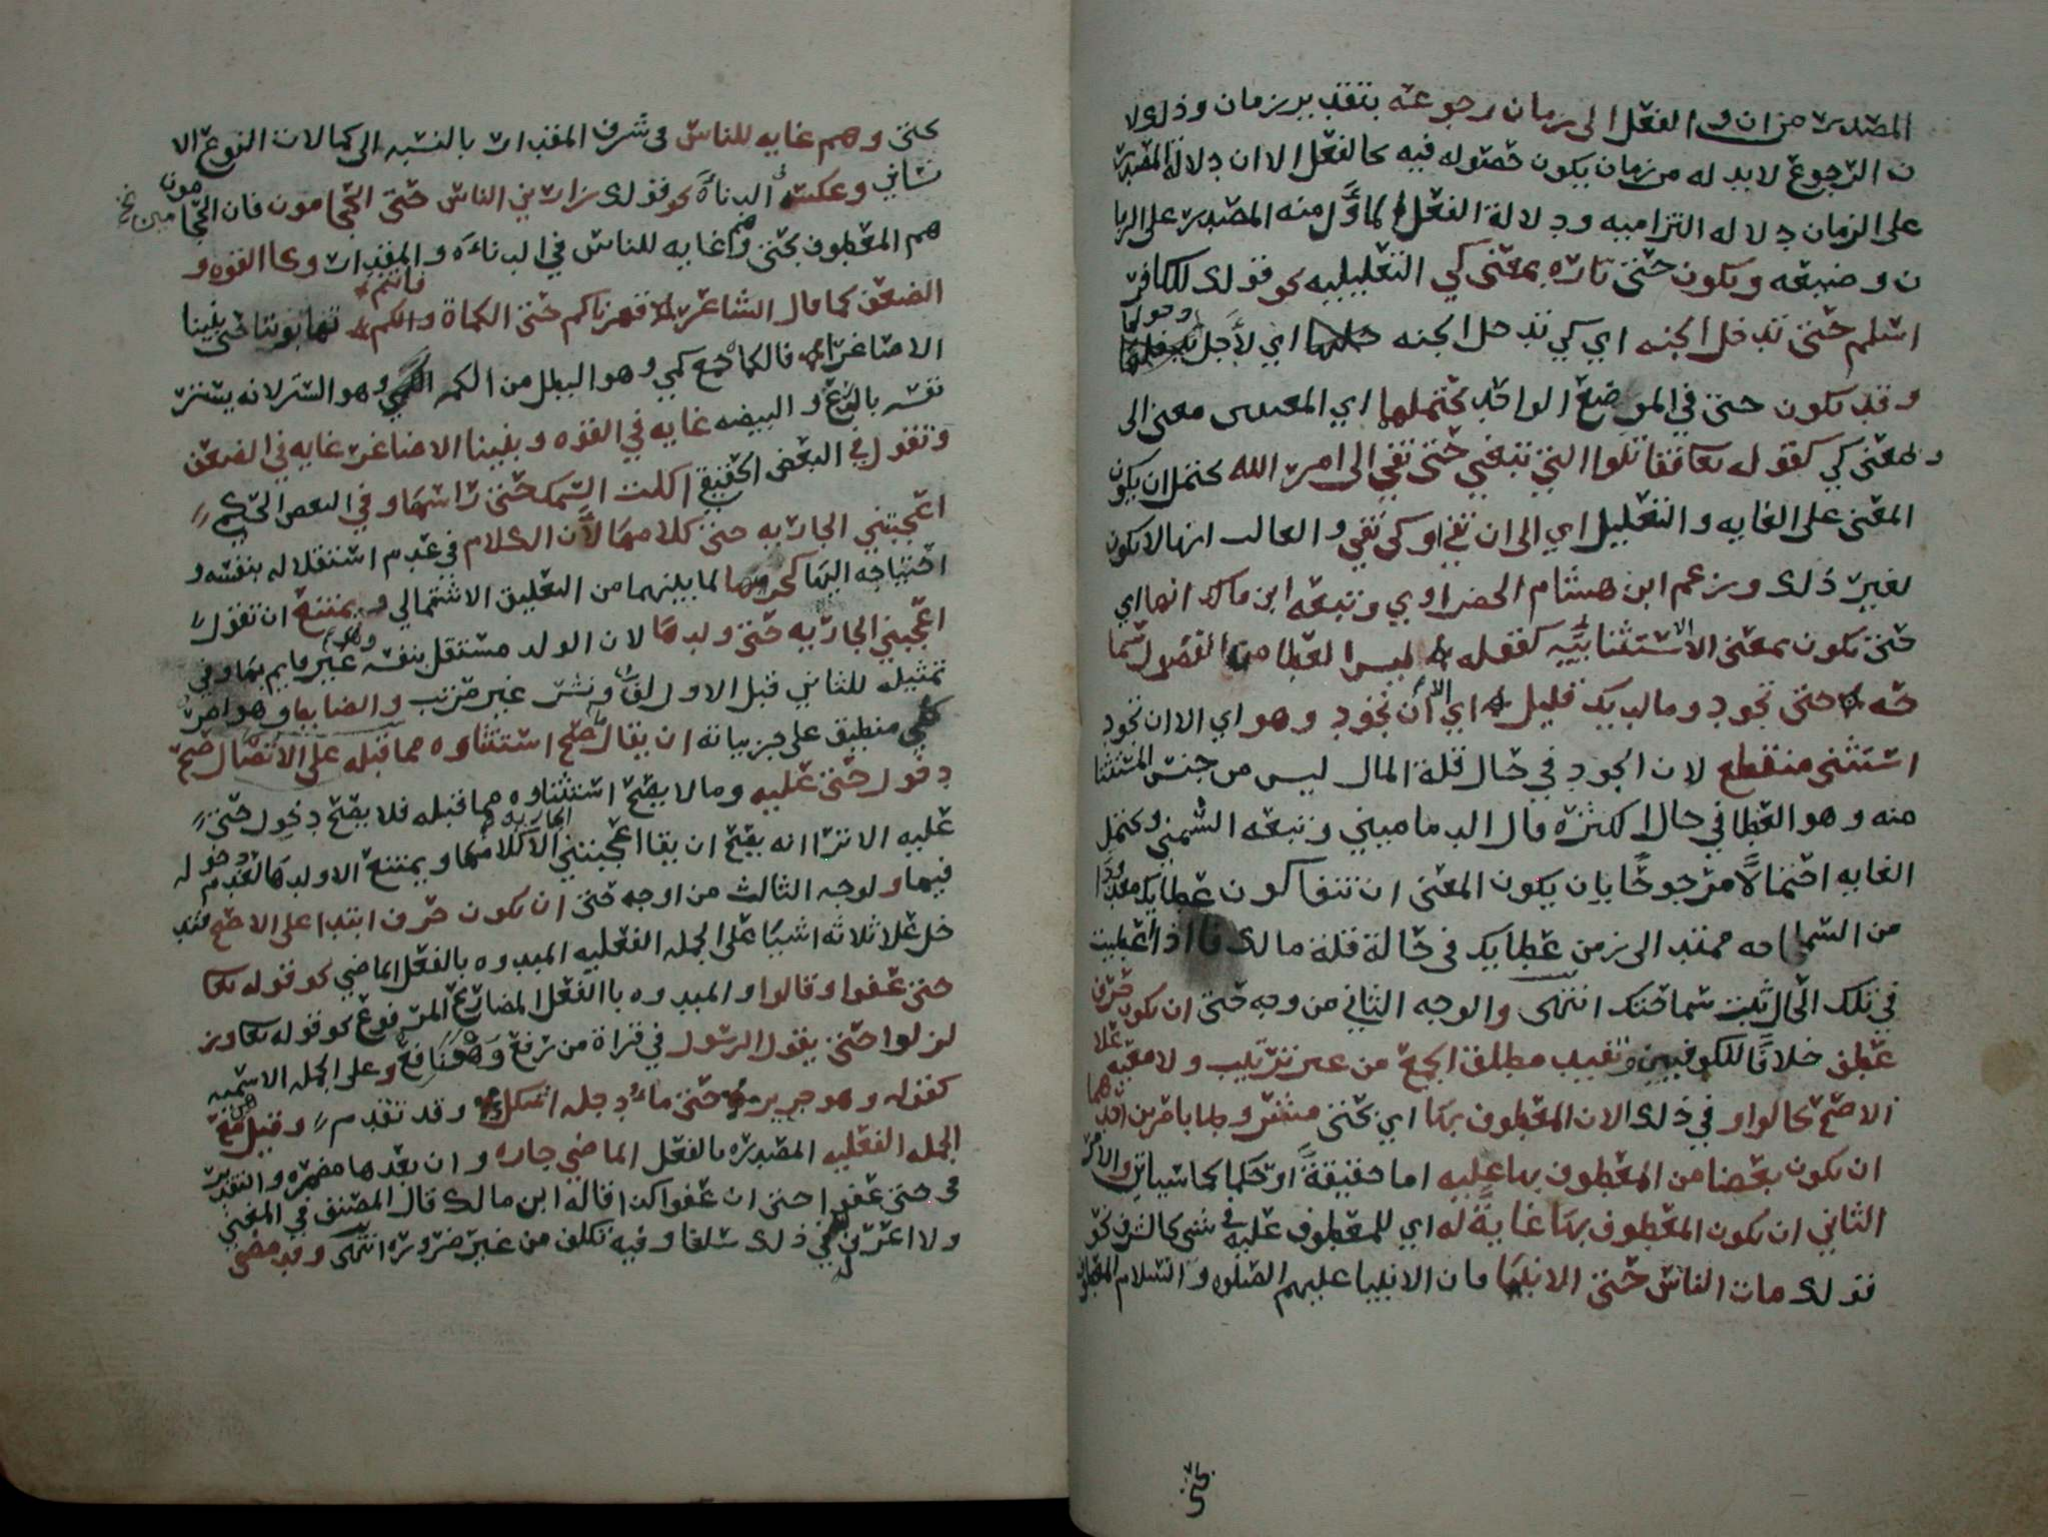 المصدر من ان والفعل الى زمان رجوعه بتقدير زمان وذلك لا
ن الرجوع لابد له من زمان يكون حصوله فيه كالفعل الا ان دلالة المصدر
على الزمان دلاله التزاميه ودلالة الفعل الماوّل منه المصدر على الزما
ن وضيعه وتكون حتى تاره بمعنى كي التعليليه نحو قولك للكافر
اسلم حتى تدخل الجنه اي كي تدخل الجنه اي لأجل دخولها
وقد تكون حتى في الموضع الواحد يحتملها اي المعنيين معنى الى
ومعنى كي كقوله تعا فقاتلوا التي تبغي حتى تفي الى امر الله يحتمل ان يكون
المعنى على الغايه والتعليل اي الى ان تفي او كي تفي والغالب انها لا تكون
لغير ذلك وزعم ابن هشام الحضراوي وتبعه ابن مالك انها اي
حتى تكون بمعنى الا الاستثنائيّه كقوله ليس العطا من الفضول سما
حه حتى تجود وما لديك قليل اي الا أن تجود وهو اي الا ان تجود
استثنى منقطع لان الجود في حال قلة المال ليس من جنس المستثنا
منه وهو العطا في حال الكثره قال الدماميني وتبعه الشمني ويحتمل
الغايه احتمالًا مرجوحًا بان يكون المعنى ان تنفا كون عطايك معدودا
من السماحه ممتد الى زمن عطايك في حالة قلة مالك فااذا أعطيت
في تلك الحال ثبت سماحتك انتهى والوجه الثاني من وجه حتى ان تكون حرف
عطف خلافًا للكوفيين وتفيد مطلق الجمع من غير ترتيب ولا معيه علا
الاصح كالواو في ذلك الا ان المعطوف بها اي بحتى مشروط بامرين احدهما
ان يكون بعضا من المعطوف بها عليه اما حقيقةً او حكما كما سياتي والامر
الثاني ان يكون المعطوف بها غايةً له اي للمعطوف عليه في شي كالشرف نحو
قولك مات الناس حتى الانبيا فان الانبيا عليهم الصلوه والسلام المعطوف
بحتى
بحتى وهم غايه للناس في شرف المقدار بالنسبه الى كمالات النوع الا
نساني وعكسه الدناءة نحو قولك زارني الناس حتى الحجامون فان الحجامين
هم المعطوف بحتى وهم غايه للناس في الدناءة والمقدار وكا القوه و
الضعف كما قال الشاعر قهرناكم حتى الكماة فانتم تهابوننا حتى بنينا
الاصاغرا فالكماة جمع كمي وهو البطل من الكمه وهو الستر لانه يستر
نفسه بالدرع والبيضه غايه في القوه وبنينا الاصاغر غايه في الضعف
وتقول في البعض الحقيقي اكلت السمكه حتى راسها وفي البعض الحكمي
اعجبتني الجاريه حتى كلامها لأن الكلام في عدم استقلاله بنفسه و
احتياجه اليها كجزءها لما بينهما من التعليق الاشتمالي ويمتنع ان تقول
اعجبني الجاريه حتى ولدها لان الولد مستقل بنفسه غير قايم بها وفي
تمثيله للثاني قبل الاول لف ونشر غير مرتب والضابط وهو امر
كلي منطبق على جزيياته ان يقال صلح استثناوه مما قبله على الاتصال صح
دخول حتى عليه وما لا يصح استثناوه مما قبله فلا يصح دخول حتى
عليه الا ترا انه يصح ان يقا اعجبتني الجاريه الا كلامها ويمتنع الا ولدها لعدم دخوله
فيها ولوجه الثالث من اوجه حتى ان تكون حرف ابتدا على الاصح فتد
خل علا ثلاثه اشيا على الجمله الفعليه المبدوه بالفعل الماضي نحو قوله تعا
حتى عفوا وقالوا والمبدوه باالفعل المضارع المرفوع نحو قوله تعا وز
لزلوا حتى يقول الرسول في قراة من رفع وهو نافع وعلى الجمله الاسميه
كقوله وهو جرير حتى ماء دجله اشكل وقد تقدم وقيل هي مع
الجمله الفعليه المصدره بالفعل الماضي جاره وان بعدها مضمره والتقدير
في حتى عفوا حتى ان عفوا كذا قاله ابن مالك قال المصنف في المغني
ولا اعرف في ذلك سلفا وفيه تكلف من غير ضروره انتهى وقد مضى